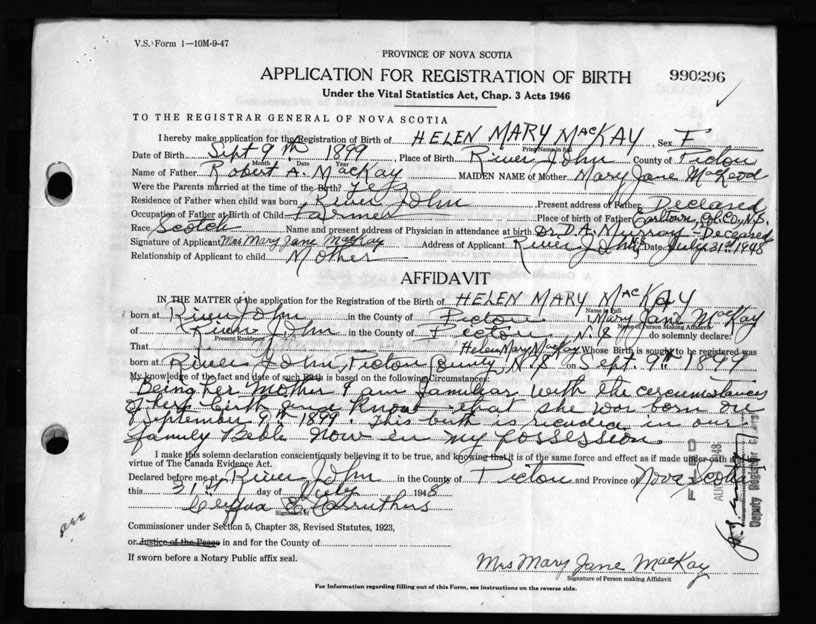 V.S. Form 1—10M-9-47
PROVINCE OF NOVA SCOTIA
APPLICATION FOR REGISTRATION OF BIRTH 990296
Under the Vital Statistics Act, Chap. 3 Acts 1946
TO THE REGISTRAR GENERAL OF NOVA SCOTIA
I hereby make application for the Registration of Birth of HELEN MARY MACKAY, Sex F
Print Name in full
Date of Birth Sept 9th 1899, Place of Birth River John County of Pictou
Month Date Year
Name of Father Robert A. MacKay MAIDEN NAME of Mother Mary Jane MacLeod
Were the Parents married at the time of the Birth? Yes
Residence of Father when child was born River John Present address of Father Deceased
Occupation of Father at Birth of Child Farmer Place of birth of Father Earltown, Col. Co, N.S.
Race Scotch Name and present address of Physician in attendance at birth Dr. D.A. Murray - Deceased
Signature of Applicant Mrs Mary Jane MacKay Address of Applicant River John Date July 31st 1948
Relationship of Applicant to child Mother
AFFIDAVIT
IN THE MATTER of the application for the Registration of the Birth of HELEN MARY MACKAY
Name in Full
born at River John in the County of Pictou I, Mary Jane MacKay
Name of Person Making Affidavit
of River John in the County of Pictou N.S do solemnly declare:
Present Residence
That Helen Mary MacKay Whose Birth is sought to be registered was
born at River John, Pictou County, N.S on Sept. 9th 1899
My knowledge of the fact and date of such Birth is based on the following Circumstances:
Being her Mother I am familiar with the circumstances
of her birth and know that she was born on
September 9th 1899. This birth is recorded in our
family Bible now in my possession
I make this solemn declaration conscientiously believing it to be true, and knowing that it is of the same force and effect as if made under oath
virtue of The Canada Evidence Act.
Declared before me at River John in the County of Pictou and Province of Nova Scotia
this 31st day of July 1948
Signature of
Commissioner under Section 5, Chapter 38, Revised Statutes, 1923,
or Justice of the Peace in and for the County of
If sworn before a Notary Public affix seal.
Mrs Mary Jane MacKay
Signature of Person making Affidavit
For Information regarding filling out of this Form, see instructions on the reverse side.
FILED
Deputy Registrar